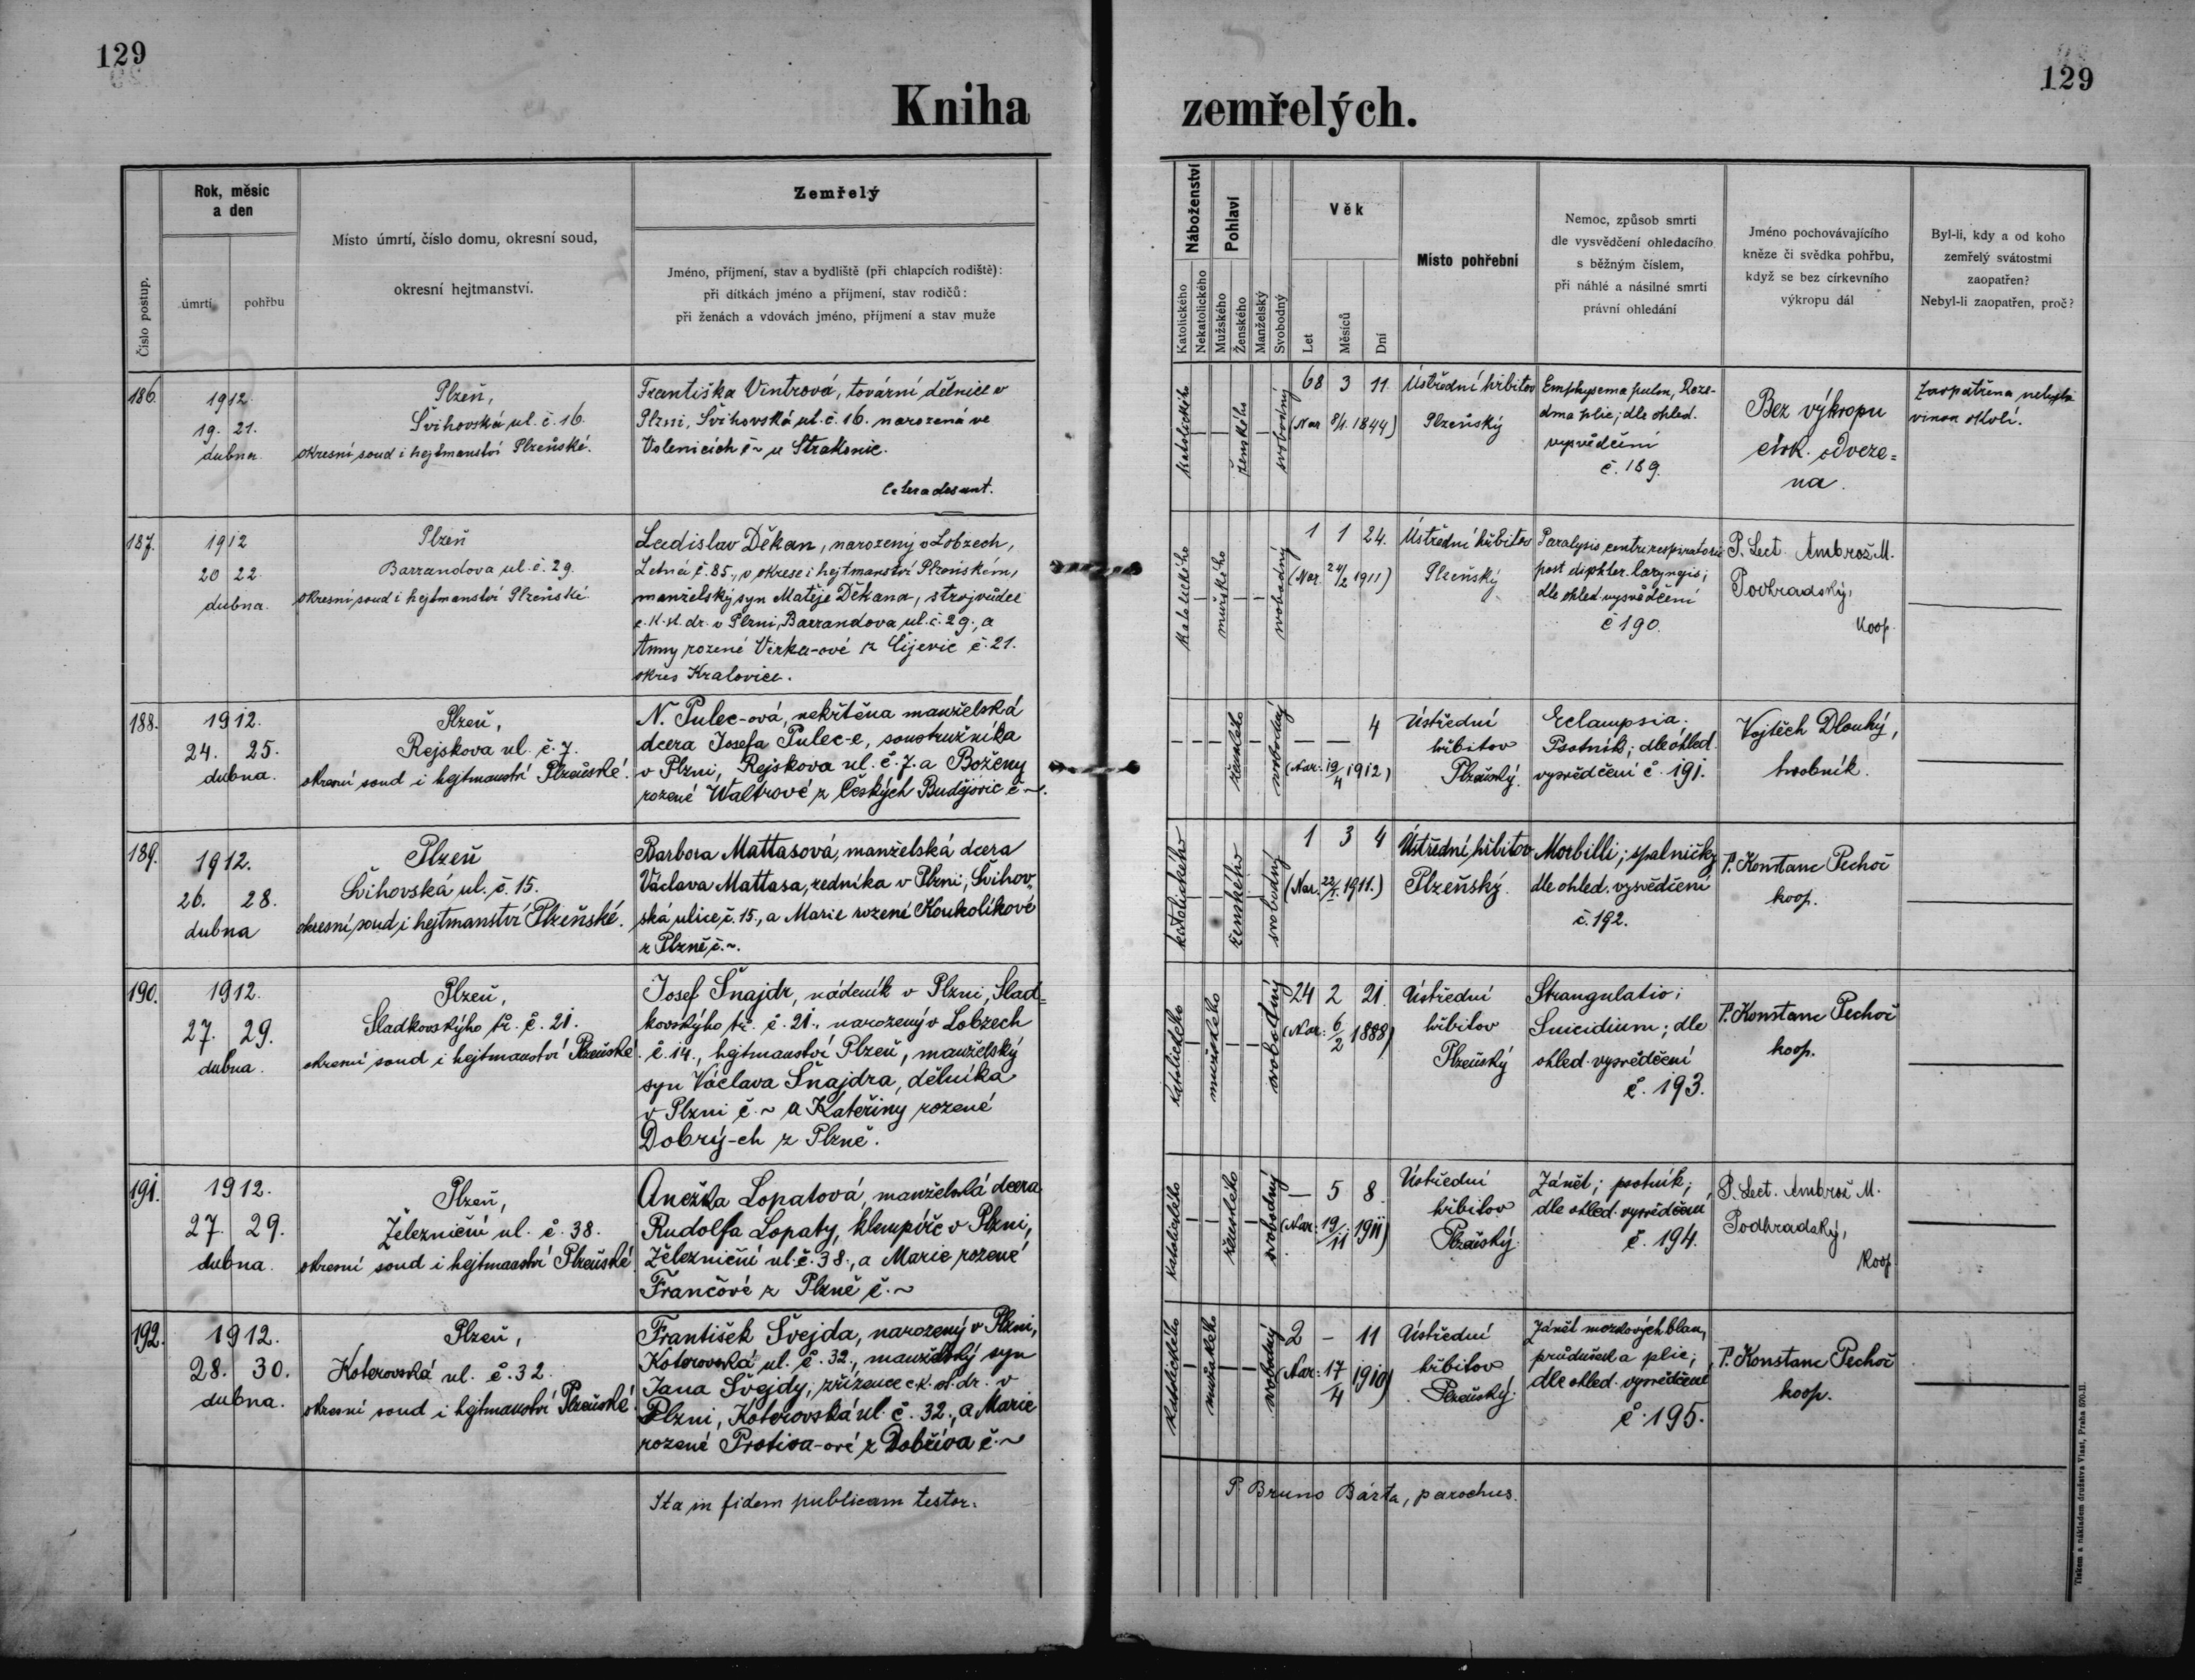 129
Kniha
Číslo postup.
Rok, měsíc
a den
úmrtí
pohřbu
Místo úmrtí, číslo domu, okresní soud,
okresní hejtmanství.
Zemřelý
Jméno, příjmení, stav a bydliště (při chlapcích rodiště):
při dítkách jméno a příjmení, stav rodičů:
při ženách a vdovách jméno, příjmení a stav muže
186.
1912
19. 21.
dubna.
Plzeň,
Švihovská ul. č. 16.
okresní soud i hejtmanství Plzeňské.
Františka Vintrová, tovární dělnice v
Plzni, Švihovská ul. č. 16. narozená ve
Volenicích č ~ u Strakonic.
Cetera desunt.
187.
1912
20 22
dubna.
Plzeň
Barrandova ul. č. 29.
okresní soud i hejtmanství Plzeňské
Ladislav Děkan, narozený v Lobzech,
Letná č. 85., v okrese i hejtmanství Plzeňském,
manželský syn Matěje Děkana, strojvůdce
c. k. st. dr. v Plzni, Barrandova ul. č. 29., a
Anny rozené Virka-ové z č. 21.
okres Kralovice.
188.
1912.
24. 25.
dubna.
Plzeň,
Rejskova ul. č. 7.
okresní soud i hejtmanství Plzeňské.
N. Pulec-ová, nekřtěna manželská
dcera Josefa Pulec-e, soustružníka
v Plzni, Rejskova ul. č. 7. a Boženy
rozené Waltrové z Českých Budějovic č ~.
189.
1912.
26. 28.
dubna
Plzeň
Švihovská ul. č. 15.
okresní soud i hejtmanství Plzeňské.
Barbora Mattasová, manželská dcera
Václava Mattasa, zedníka v Plzni, Švihov-
ská ulice č. 15., a Marie rozené Koukolíkové
z Plzně č. ~.
190.
1912.
27. 29.
dubna.
Plzeň,
Sladkovského tř. č. 21.
okresní soud i hejtmanství Plzeňské
Josef Šnajdr, nádeník v Plzni, Slad=
kovskýho tř. č. 21., narozený v Lobzech
č. 14., hejtmanství Plzeň, manželský
syn Václava Šnajdra, dělníka
v Plzni č. ~ a Kateřiny rozené
Dobrý-ch z Plzně.
191.
1912.
27. 29.
dubna.
Plzeň,
Železniční ul. č. 38.
okresní soud i hejtmanství Plzeňské
Anežka Lopatová, manželská dcera
Rudolfa Lopaty, klempíře v Plzni,
Železniční ul. č. 38., a Marie rozené
Frančové z Plzně č. ~
192.
1912.
28. 30.
dubna.
Plzeň,
Koterovská ul. č. 32.
okresní soud i hejtmanství Plzeňské.
František Švejda, narozený v Plzni,
Koterovská ul. č. 32., manželský syn
Jana Švejdy, zřízence c. k. st. dr. v
Plzni, Koterovská ul. č. 32., a Marie
rozené Protiva-ové z Dobříva č. ~
Ita in fidem publicam testor.
129
zemřelých.
Náboženství
Katolického
Nekatolického
Pohlaví
Mužského
Ženského
Manželský
Svobodný
Věk
Let
Měsíců
Dní
Místo pohřební
Nemoc, způsob smrti
dle vysvědčení ohledacího
s běžným číslem,
při náhlé a násilné smrti
právní ohledání
Jméno pochovávajícího
kněze či svědka pohřbu,
když se bez církevního
výkropu dál
Byl-li, kdy a od koho
zemřelý svátostmi
zaopatřen?
Nebyl-li zaopatřen, proč?
katolického
ženského
svobodný
68 3 11.
(Nar 8/1. 1844)
Ústřední hřbitov
Plzeňský
Emphysema pulm, Roze-
dma plic; dle ohled.
vysvědčení
č. 189.
Bez výkropu
círk. odveze=
na.
Zaopatřena nebyla
vinou okolí.
katolického
mužského
svobodný
1 1 24.
(Nar. 24/2 1911)
Ústřední hřbitov
Plzeňský
Paralysis centri respiratorii
post diphter. laryngis;
dle ohled. vysvědčení
č 190.
P. Lect. Ambrož M.
Podhradský,
koop.
ženského
svobodný
— — 4
(Nar. 19/4 1912)
Ústřední
hřbitov
Plzeňský.
Eclampsia.
Psotník; dle ohled.
vysvědčení č. 191.
Vojtěch Dlouhý,
hrobník.
katolického
ženského
svobodný
1 3 4
(Nar. 22/1. 1911.)
Ústřední hřbitov
Plzeňský.
Morbilli; spalničky
dle ohled. vysvědčení
č. 192.
P. Konstanc Pechoč
koop.
katolického
mužského
svobodný
24 2 21.
(Nar: 6/2 1888)
Ústřední
hřbitov
Plzeňský
Strangulatio;
Suicidium; dle
ohled. vysvědčení
č. 193.
P. Konstanc Pechoč
koop.
katolického
ženského
svobodný
— 5 8
(Nar: 19/11 1911)
Ústřední
hřbitov
Plzeňský.
Zánět; psotník;
dle ohled. vysvědčení
č. 194.
P. Lect. Ambrož M.
Podhradský,
koop
katolického
mužského
svobodný
2 — 11
(Nar: 17/4 1910)
Ústřední
hřbitov
Plzeňský.
Zánět mozkových blan,
průdušek a plic;
dle ohled. vysvědčení
č. 195.
P. Konstanc Pechoč
koop.
P Bruno Bárta, parochus.
Tiskem a nákladem družstva Vlast, Praha 570-II.